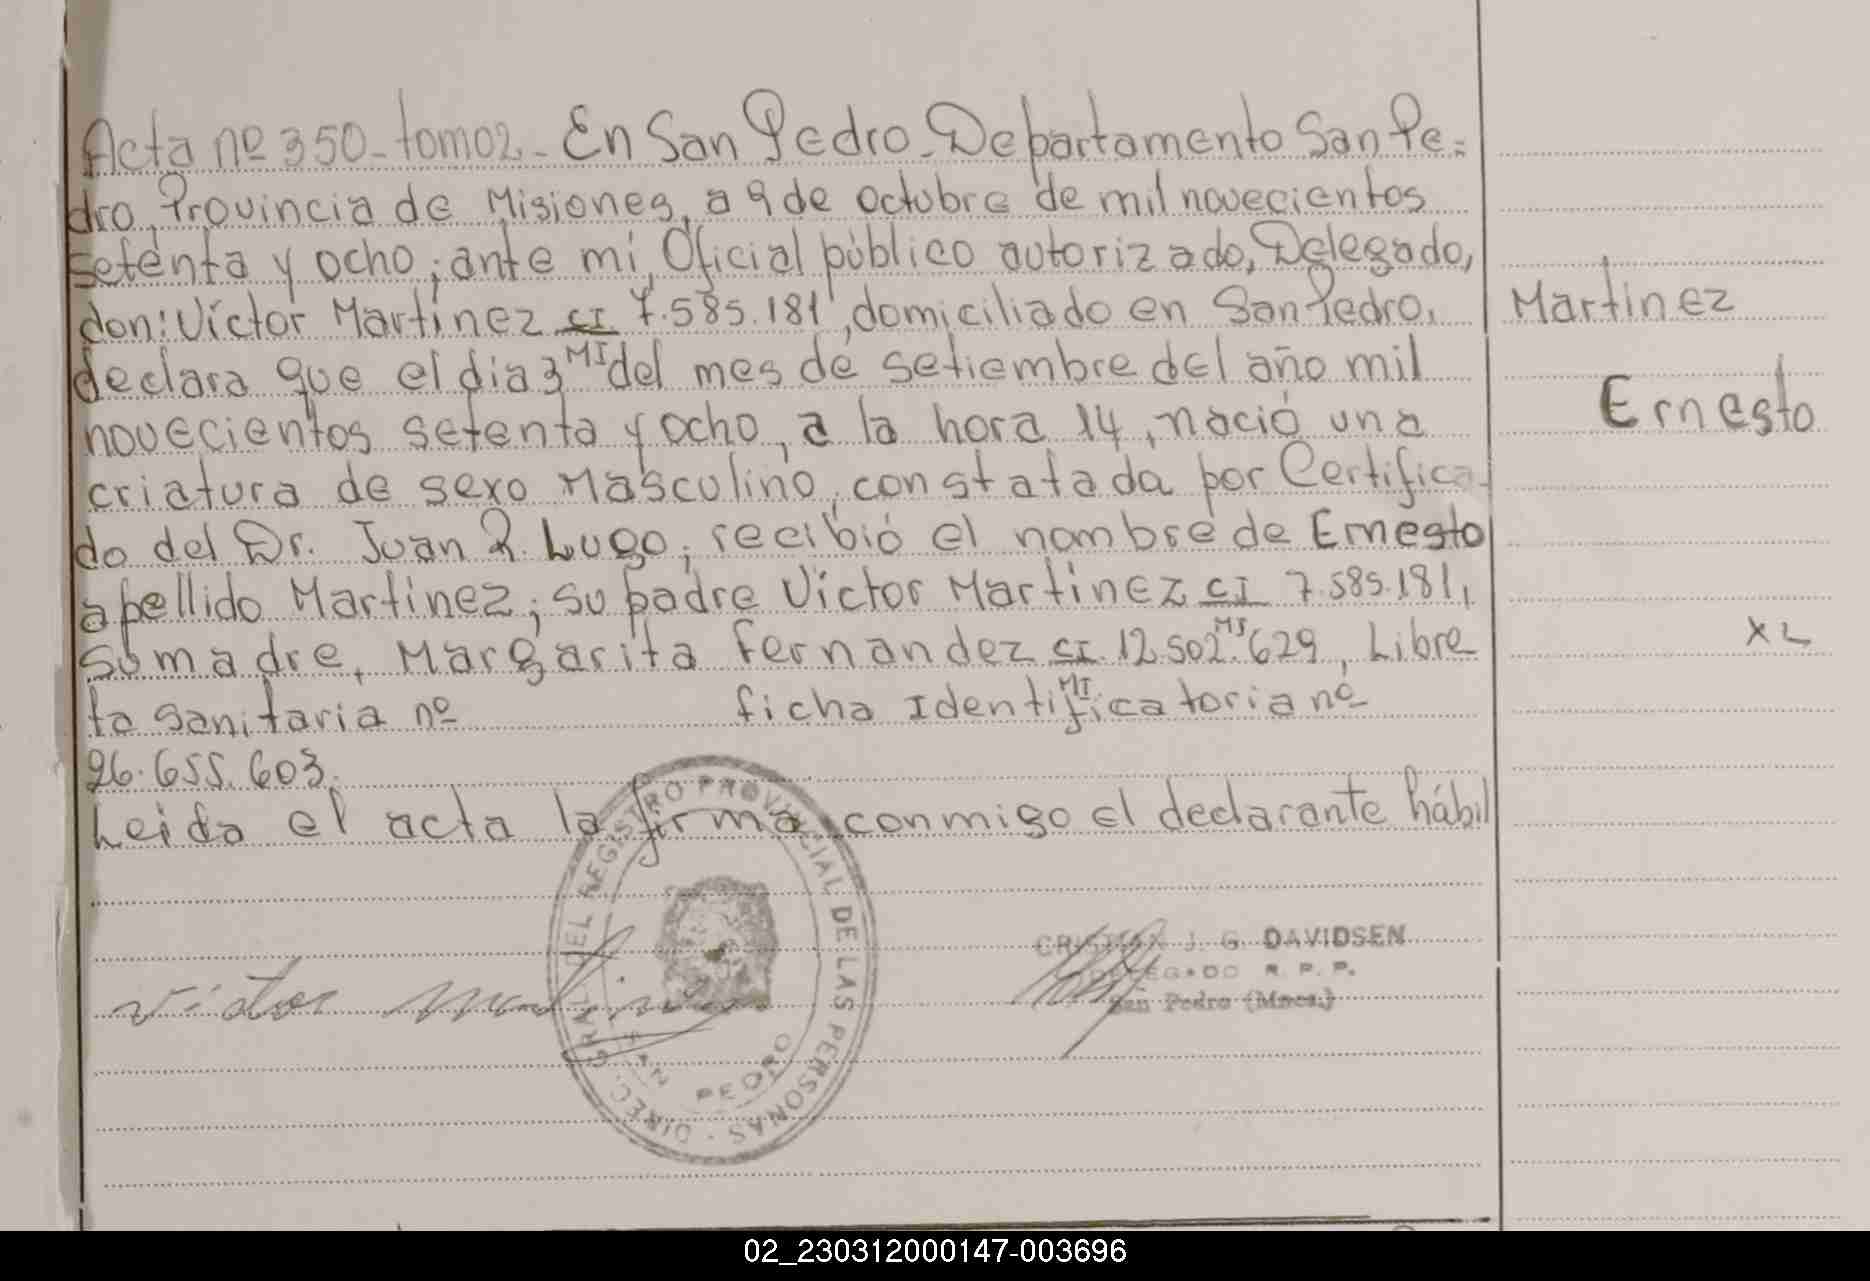 Acta nº 350-tomo2- En San Pedro-Departamento San Pe=
dro, Provincia de Misiones, a 9 de octubre de mil novecientos
setenta y ocho; ante mi, Oficial público autorizado, Delegado,
don: Víctor Martínez CI 7.585.181, domiciliado en San Pedro,
MI
declara que el dia 3 del mes de setiembre del año mil
novecientos setenta y ocho, a la hora 14, nació una
criatura de sexo Masculino, constatada por Certifica-
do del Dr. Juan R. Lugo; recibió el nombre de Ernesto
apellido Martinez; su padre Víctor Martinez CI 7.585.181,
MI
su madre, Margarita Fernandez CI. 12.502.629, Libre
MI
ta sanitaria nº ficha Identificatoria nº
26.655.603.
Leida el acta la firma conmigo el declarante hábil
Martinez
Ernesto
XL
victor
DIREC. GRAL. DEL REGISTRO PROVINCIAL DE LAS PERSONAS
SAN PEDRO
CRISTIAN J. G. DAVIDSEN
DELEGADO R. P. P.
San Pedro (Mnes.)
02_230312000147-003696